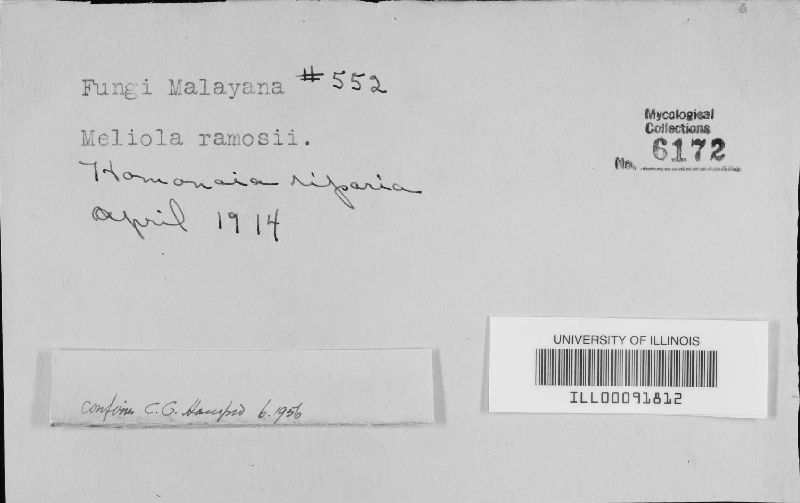 Fungi Malayana #552
Meliola ramosii.
Homonoia riparia
April 1914
Mycological
Collections
No. 6172
UNIVERSITY OF ILLINOIS
ILL00091812
C.G. 6.1956